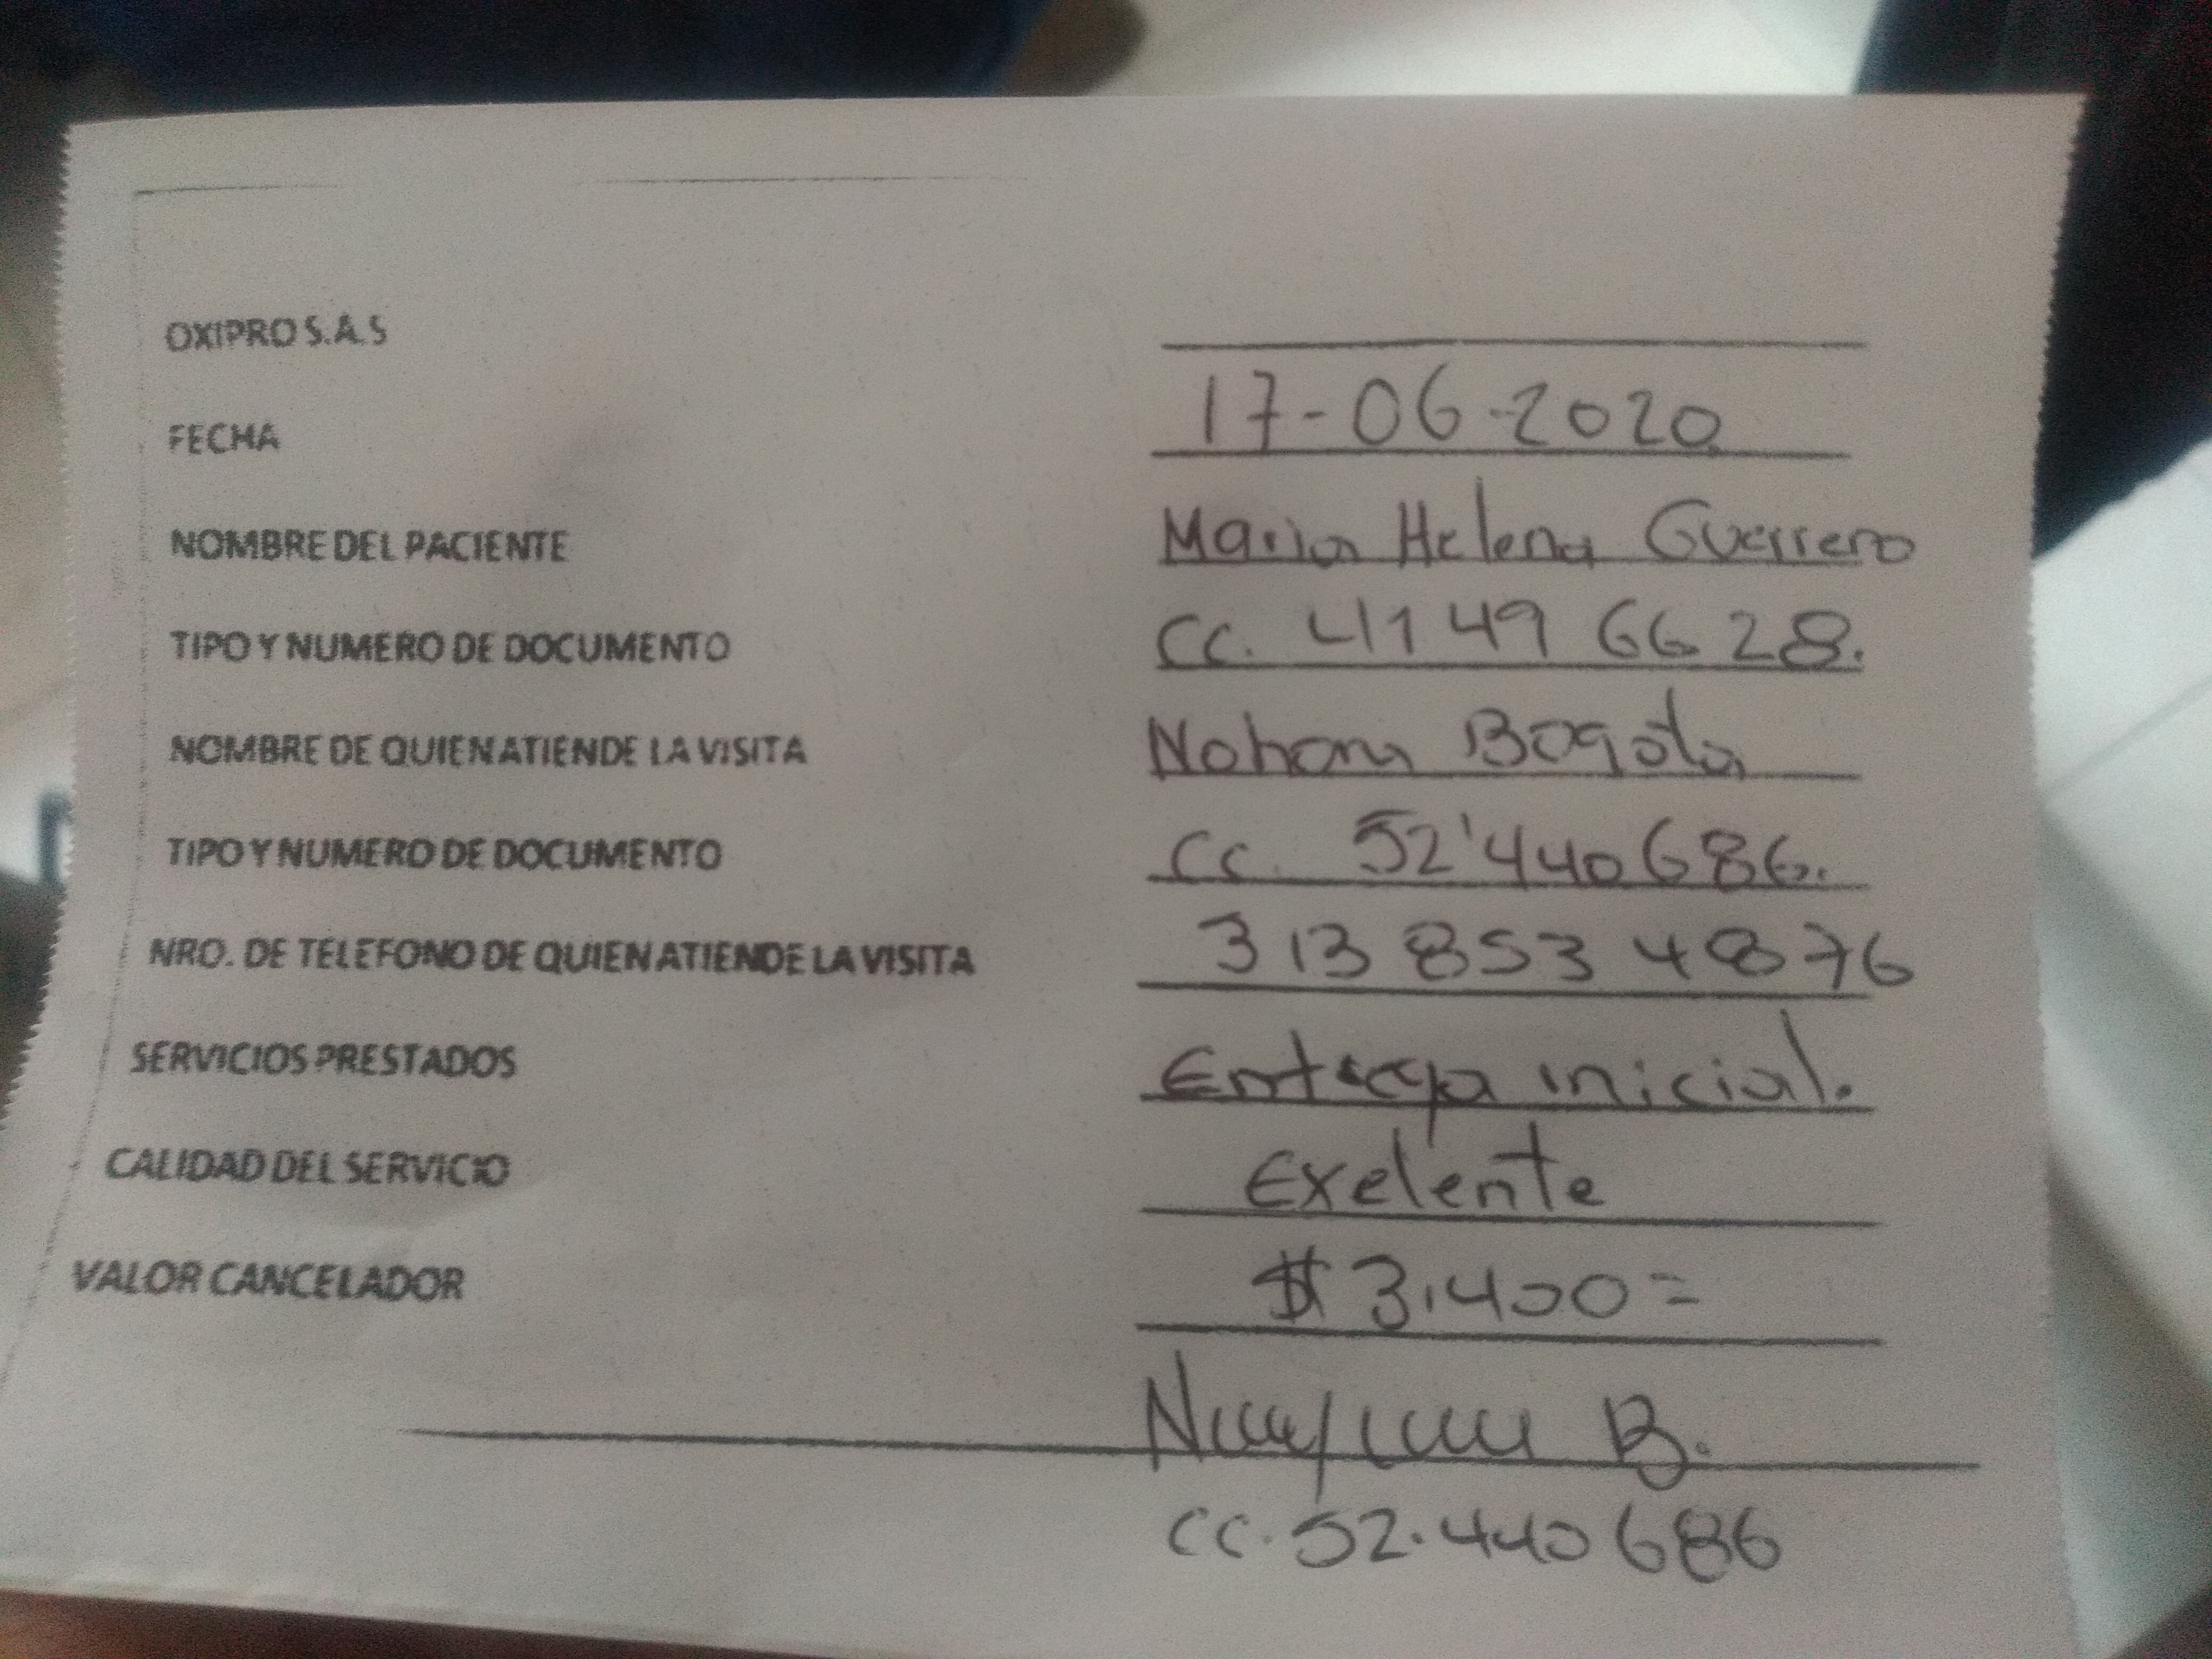 OXIPRO S.A.S
FECHA 17-06-2020
NOMBRE DEL PACIENTE Maria Helena Guerrero
TIPO Y NUMERO DE DOCUMENTO CC. 41 149 66 28.
NOMBRE DE QUIEN ATIENDE LA VISITA Nohora Bogota
TIPO Y NUMERO DE DOCUMENTO CC. 52'440686.
NRO. DE TELEFONO DE QUIEN ATIENDE LA VISITA 313 853 4876
SERVICIOS PRESTADOS Entrega inicial.
CALIDAD DEL SERVICIO Exelente
VALOR CANCELADOR $ 3.400=
B.
CC. 52.440686